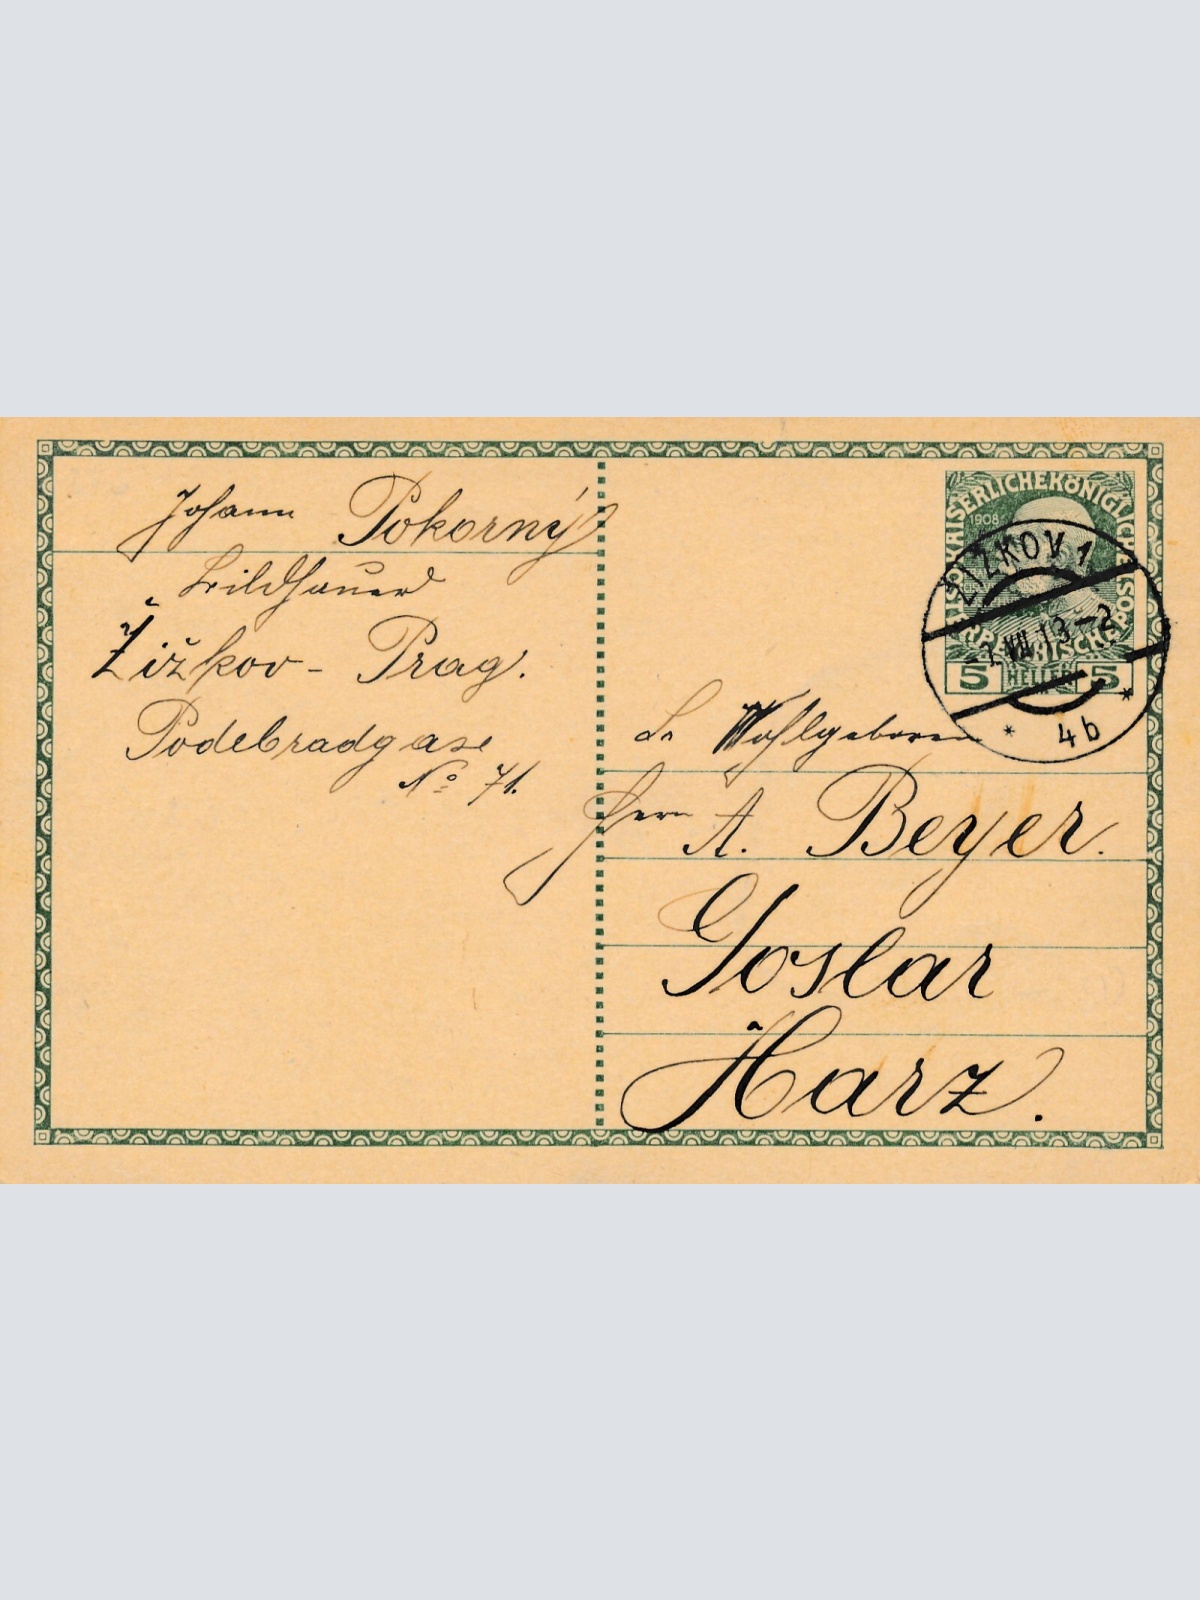 Johann Pokorný
Bildhauer
Žižkov - Prag.
Podebradgase
No 71.
KAISERLICHEKÖNIGLICHE
1908
5 HELLER 5
ŽIŽKOV 1
VII 13 - 2
* 4b *
Sr Wohlgeboren
Herrn A. Beyer.
Goslar
Harz.